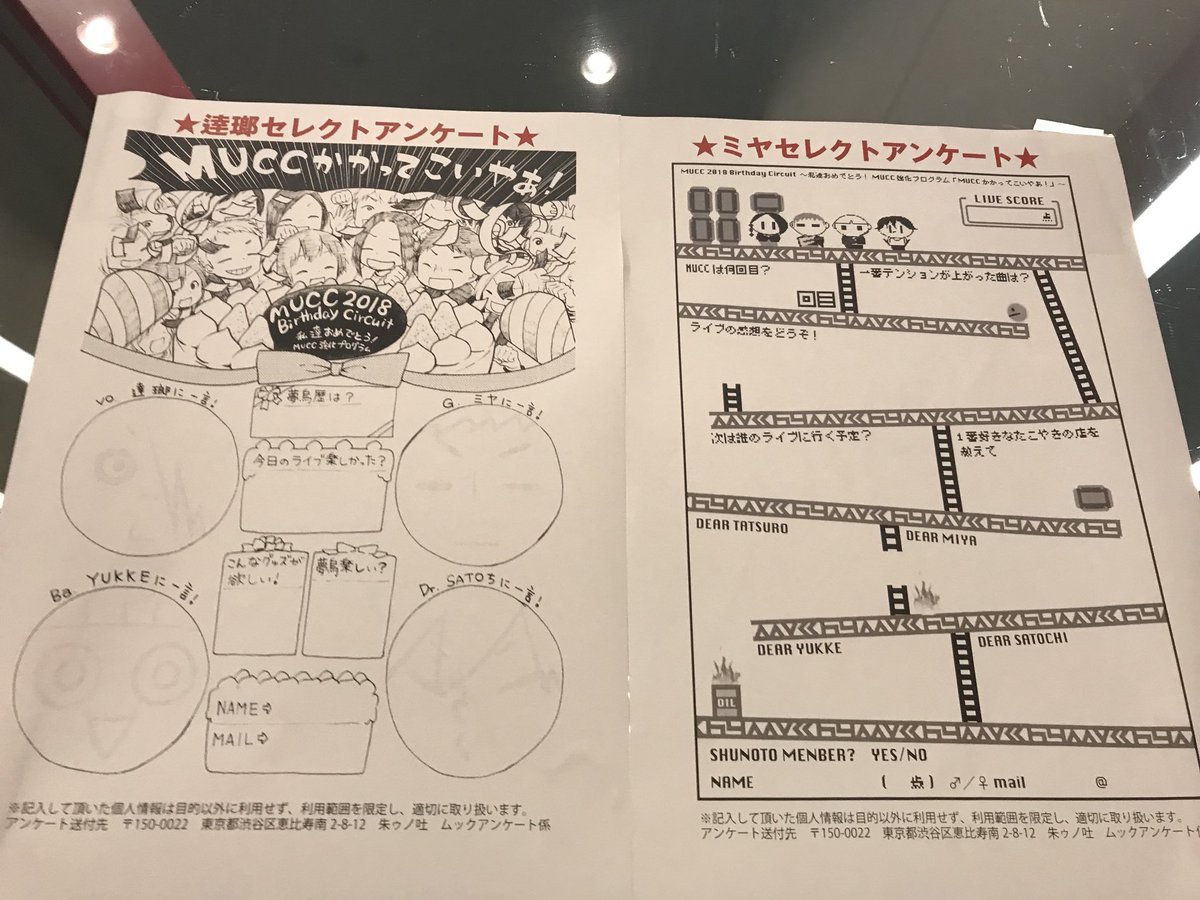 ★逹瑯セレクトアンケート★
MUCCかかってこいやぁ!
MUCC 2018
Birthday Circuit
私達おめでとう!
MUCC強化プログラム
Vo. 逹瑯に一言!
夢烏歴は?
G. ミヤに一言!
今日のライブ楽しかった?
こんなグッズが
欲しい!
夢烏楽しい?
Ba. YUKKEに一言!
Dr. SATOちに一言!
NAME⇨
MAIL⇨
※記入して頂いた個人情報は目的以外に利用せず、利用範囲を限定し、適切に取り扱います。
アンケート送付先 〒150-0022 東京都渋谷区恵比寿南 2-8-12 朱ゥノ吐 ムックアンケート係
★ミヤセレクトアンケート★
MUCC 2018 Birthday Circuit ～私達おめでとう! MUCC強化プログラム「MUCCかかってこいやあ!」～
LIVE SCORE
点
MUCCは何回目?
回目
一番テンションが上がった曲は?
ライブの感想をどうぞ!
次は誰のライブに行く予定?
1番好きなたこやきの店を
教えて
DEAR TATSURO
DEAR MIYA
DEAR YUKKE
DEAR SATOCHI
OIL
SHUNOTO MENBER? YES/NO
NAME ( 歳) ♂/♀ mail @
※記入して頂いた個人情報は目的以外に利用せず、利用範囲を限定し、適切に取り扱います。
アンケート送付先 〒150-0022 東京都渋谷区恵比寿南 2-8-12 朱ゥノ吐 ムックアンケート係